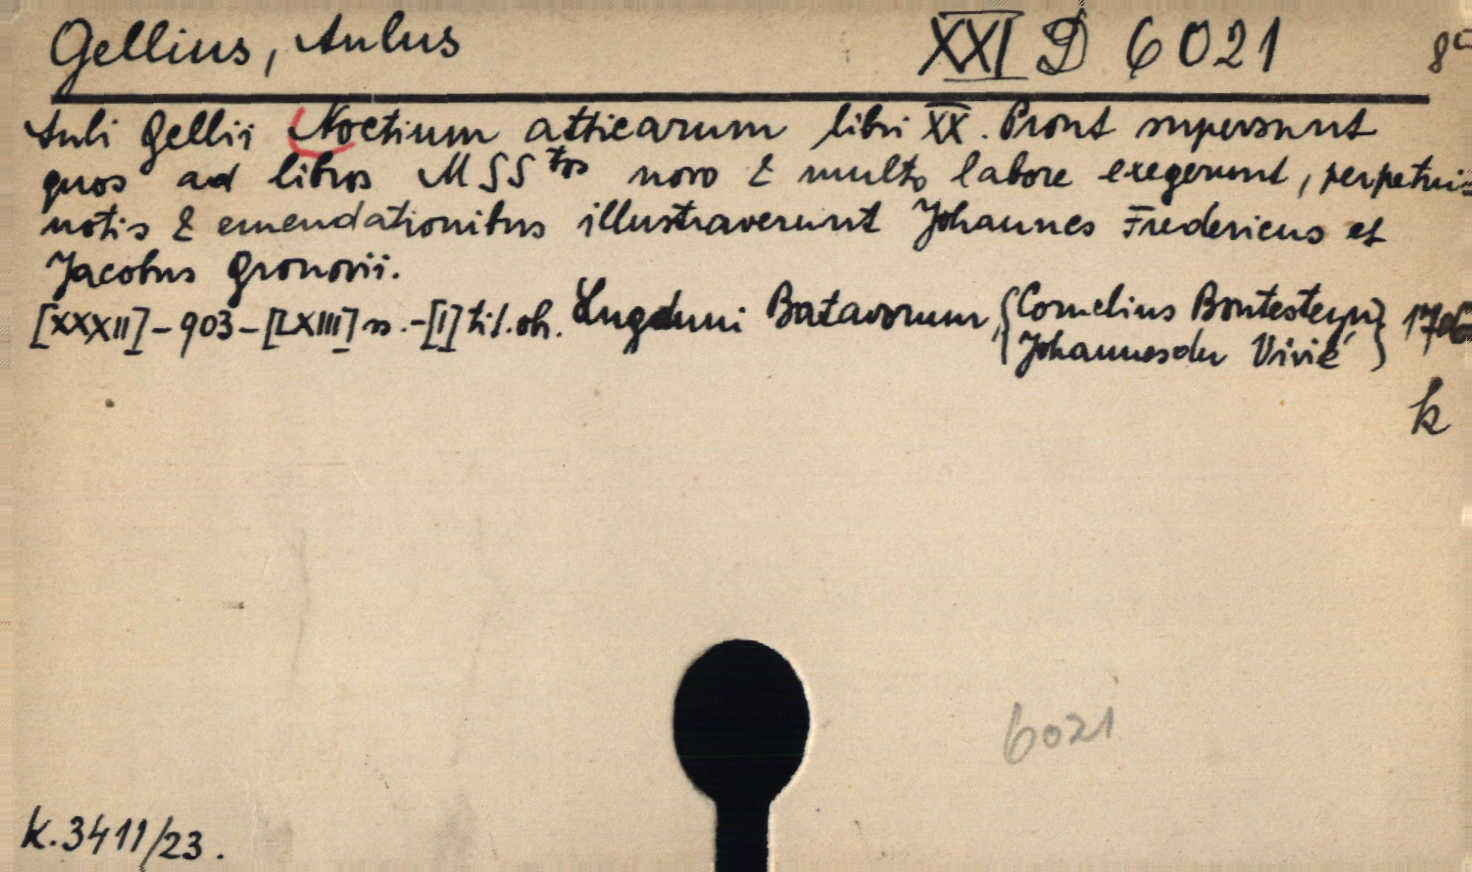 Gellius, Aulus XXI D 6021 8°
Auli Gellii Noctium atticarum libri XX. Prout supersunt
quos ad libros MSStos novo & multo labore exegerunt, perpetuis
notis & emendationibus illustraverunt Johannes Fredericus et
Jacobus Gronovii.
[XXXII]-903-[LXIII] s.-[I] tit.oh. Lugduni Batavorum, {Cornelius Boutesteyn} 1706
{Johannes du Vivié}
k
6021
K.3411/23.